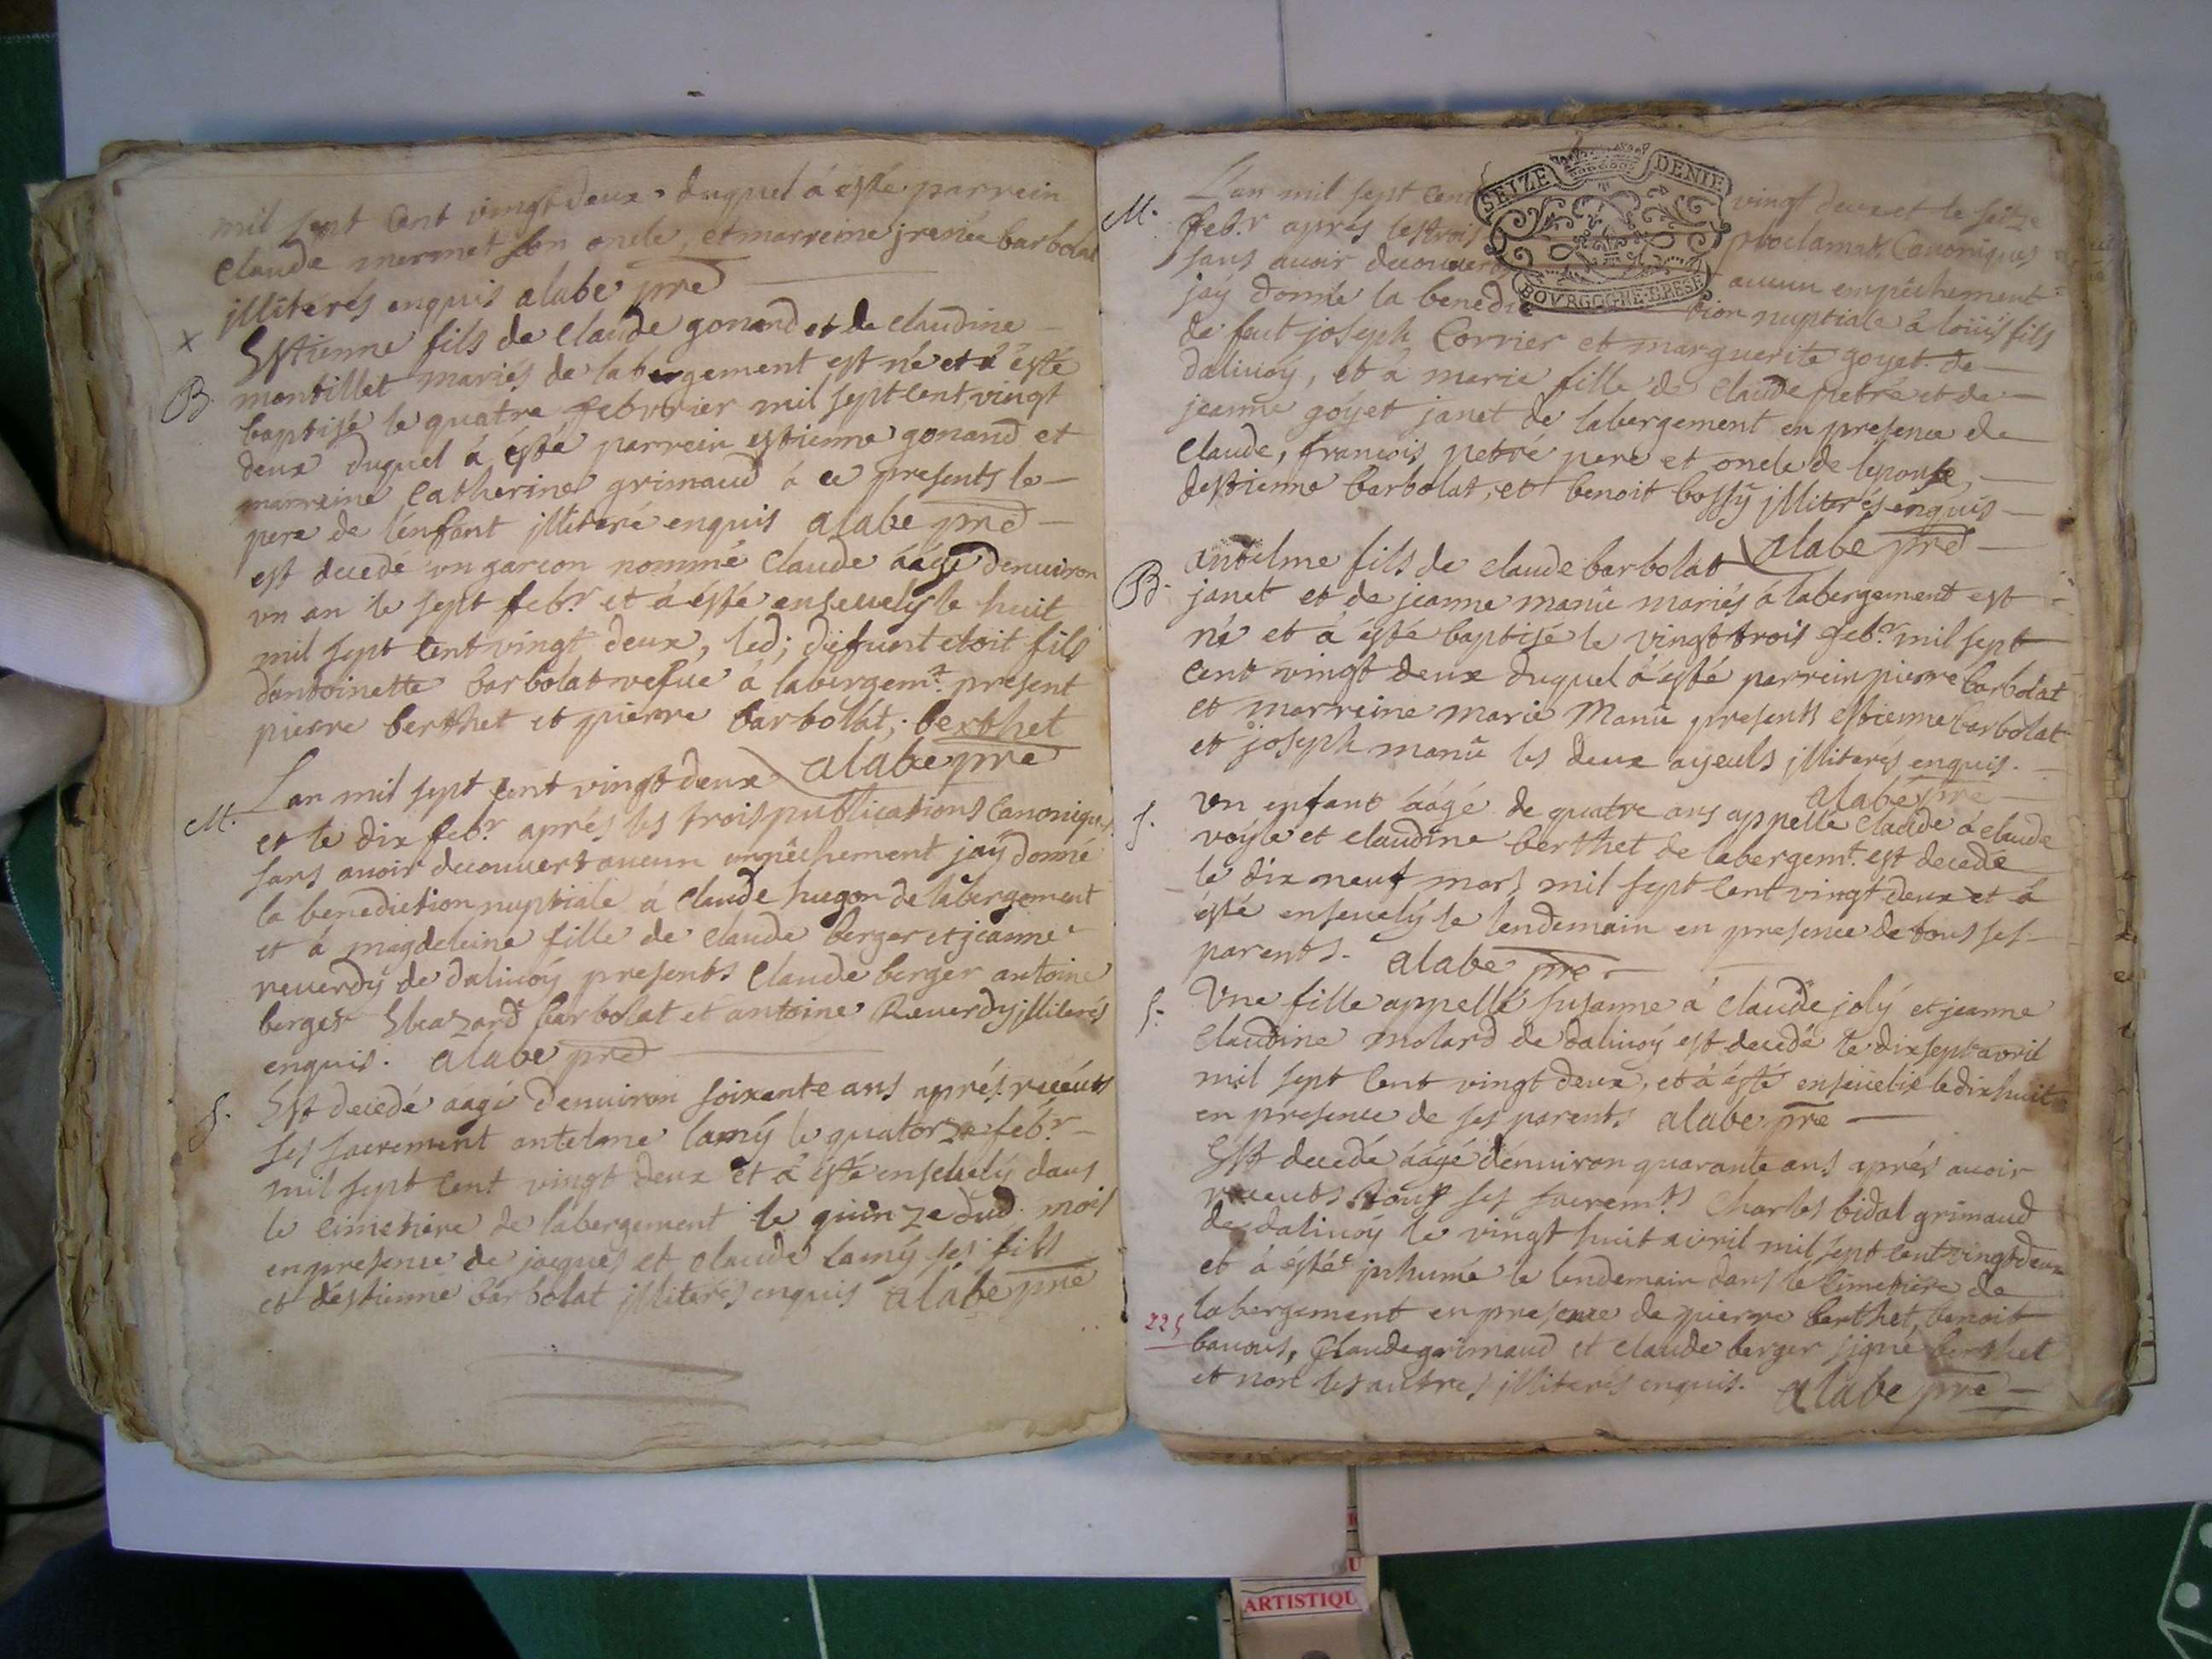 mil sept Cent vingt deux duquel á esté parrein
Claude mermet son oncle, et marreine jrenée barbolat
jllitérés enquis alabe pre
x
Estienne fils de Claude gonand et de claudine
montillet mariés de labergement est né et á esté
B. baptisé le quatre febvrier mil sept Cent vingt
deux duquel á esté parrein estienne gonand et
marreine Catherine grimaud á ce presents le
pere de lénfant jllitéré enquis alabe pre
est decedé un garcon nommé Claude áágé denuiron
vn an le sept febr et á ésté enseuely le huit
mil sept Cent vingt deux, led; défunt etoit fils
dantoinette barbolat vefue á labergemt present
pierre berthet et pierre barbolat; berthet
alabe pre
M. Lan mil sept Cent vingt deux
et le dix febr aprés les trois publications Canoniques
sans auoir decouuert aucun empêchement jaÿ donné
la benediction nuptiale á Claude hugon de labergement
et á magdeleine fille de Claude berger et jeanne
reuerdy de daliuoÿ presents Claude berger antoine
berger Eleazard barbolat et antoine Reuerdy jlliterés
enquis. alabe pre
S. Est decedé áágé denuiron soixante ans aprés receuts
ses sacrement antelme lamÿ le quatorze febr
mil sept Cent vingt deux et á esté enseuelÿ dans
le cimetiere de labergement le quinze dud. mois
en presence de jacques et claude lamÿ ses fils
et déstienne barbolat jlliterés enquis alabe pre
SEIZE DENIE
BOVRGOGNE·BRESE
M. Lan mil sept Cent vingt deux et le seitze
febr aprés les trois proclamat. Canoniques
sans auoir decouuert aucun empêchement
jaÿ donné la benediction nuptiale á loüis fils
de feut joseph Corrier et marguerite goyet de
daliuoÿ, et á marie fille de Claude petré et de
jeanne goÿet janet de labergement en presence de
Claude, francois petré pere et oncle de lepouse
destienne barbolat, et benoit bossÿ jlliterés enquis
alabe pre
antelme fils de claude barbolat
B. janet et de jeanne manû mariés á labergement est
né et á ésté baptisé le vingt trois febr mil sept
Cent vingt deux duquel á ésté parrein pierre barbolat
et marreine marie Manû presents estienne barbolat
et joseph manû les deux ayeuls jlliterés enquis.
alabe pre
S. Vn enfant áágé de quatre ans appellé Claude á claude
voÿle et claudine berthet de labergemt est decedé
le dix neuf mars mil sept Cent vingt deux et á
ésté enseuelÿ le lendemain en presence de tous ses
parents. alabe pre
S. Vne fille appellé susanne á Claude jolÿ et jeanne
Claudine molard de daliuoÿ est decedé le dix sept avril
mil sept Cent vingt deux, et á ésté enseüelie le dix huit
en presence de ses parents alabe pre
Est decedé áágé dénuiron quarante ans aprés auoir
receuts tous ses sacremts Charles bidal grimaud
de daliuoÿ le vingt huit avril mil sept Cent vingt deux
et á ésté jnhumé le lendemain dans le Cimetiére de
labergement en presence de pierre berthet, benoit
225
bauous, Claude grimaud et claude berger signé berthet
et non les autres jlliterés enquis. alabe pre
ARTISTIQU